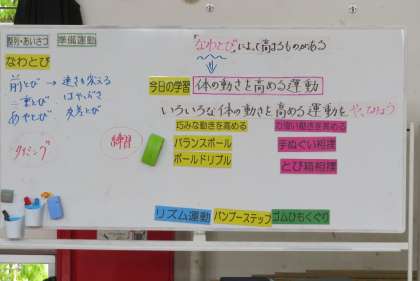 整列・あいさつ
準備運動
なわとび
前とび → 速さを変える
二重とび はやぶさ
あやとび 交差とび
タイミング
練習
「なわとび」によって高まるものがある
今日の学習
体の動きを高める運動
いろいろな体の動きを高める運動をやってみよう
巧みな動きを高める
バランスボール
ボールドリブル
力強い動きを高める
手ぬぐい相撲
とび箱相撲
リズム運動
バンブーステップ
ゴムひもくぐり